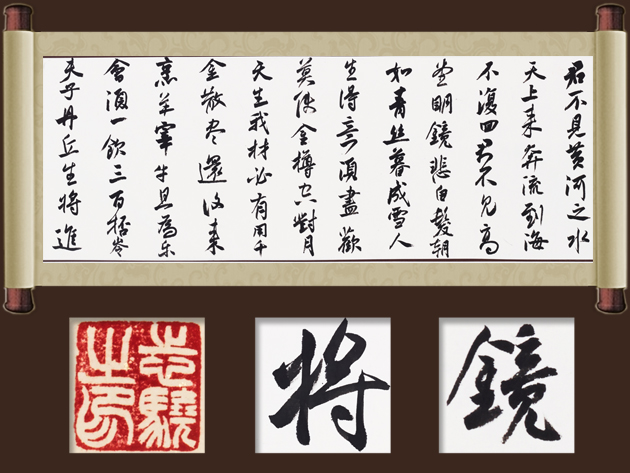 君不見黃河之水
天上来奔流到海
不復回君不見高
堂明鏡悲白髮朝
如青丝暮成雪人
生得意須盡歡
莫使金樽空對月
天生我材必有用千
金散尽還復来
烹羊宰牛且為乐
會須一飲三百杯岑
夫子丹丘生将進
志驍之印
将
鏡